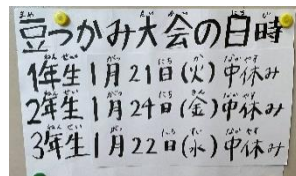 豆つかみ大会の日時
1年生1月21日(火)中休み
2年生1月24日(金)中休み
3年生1月22日(水)中休み